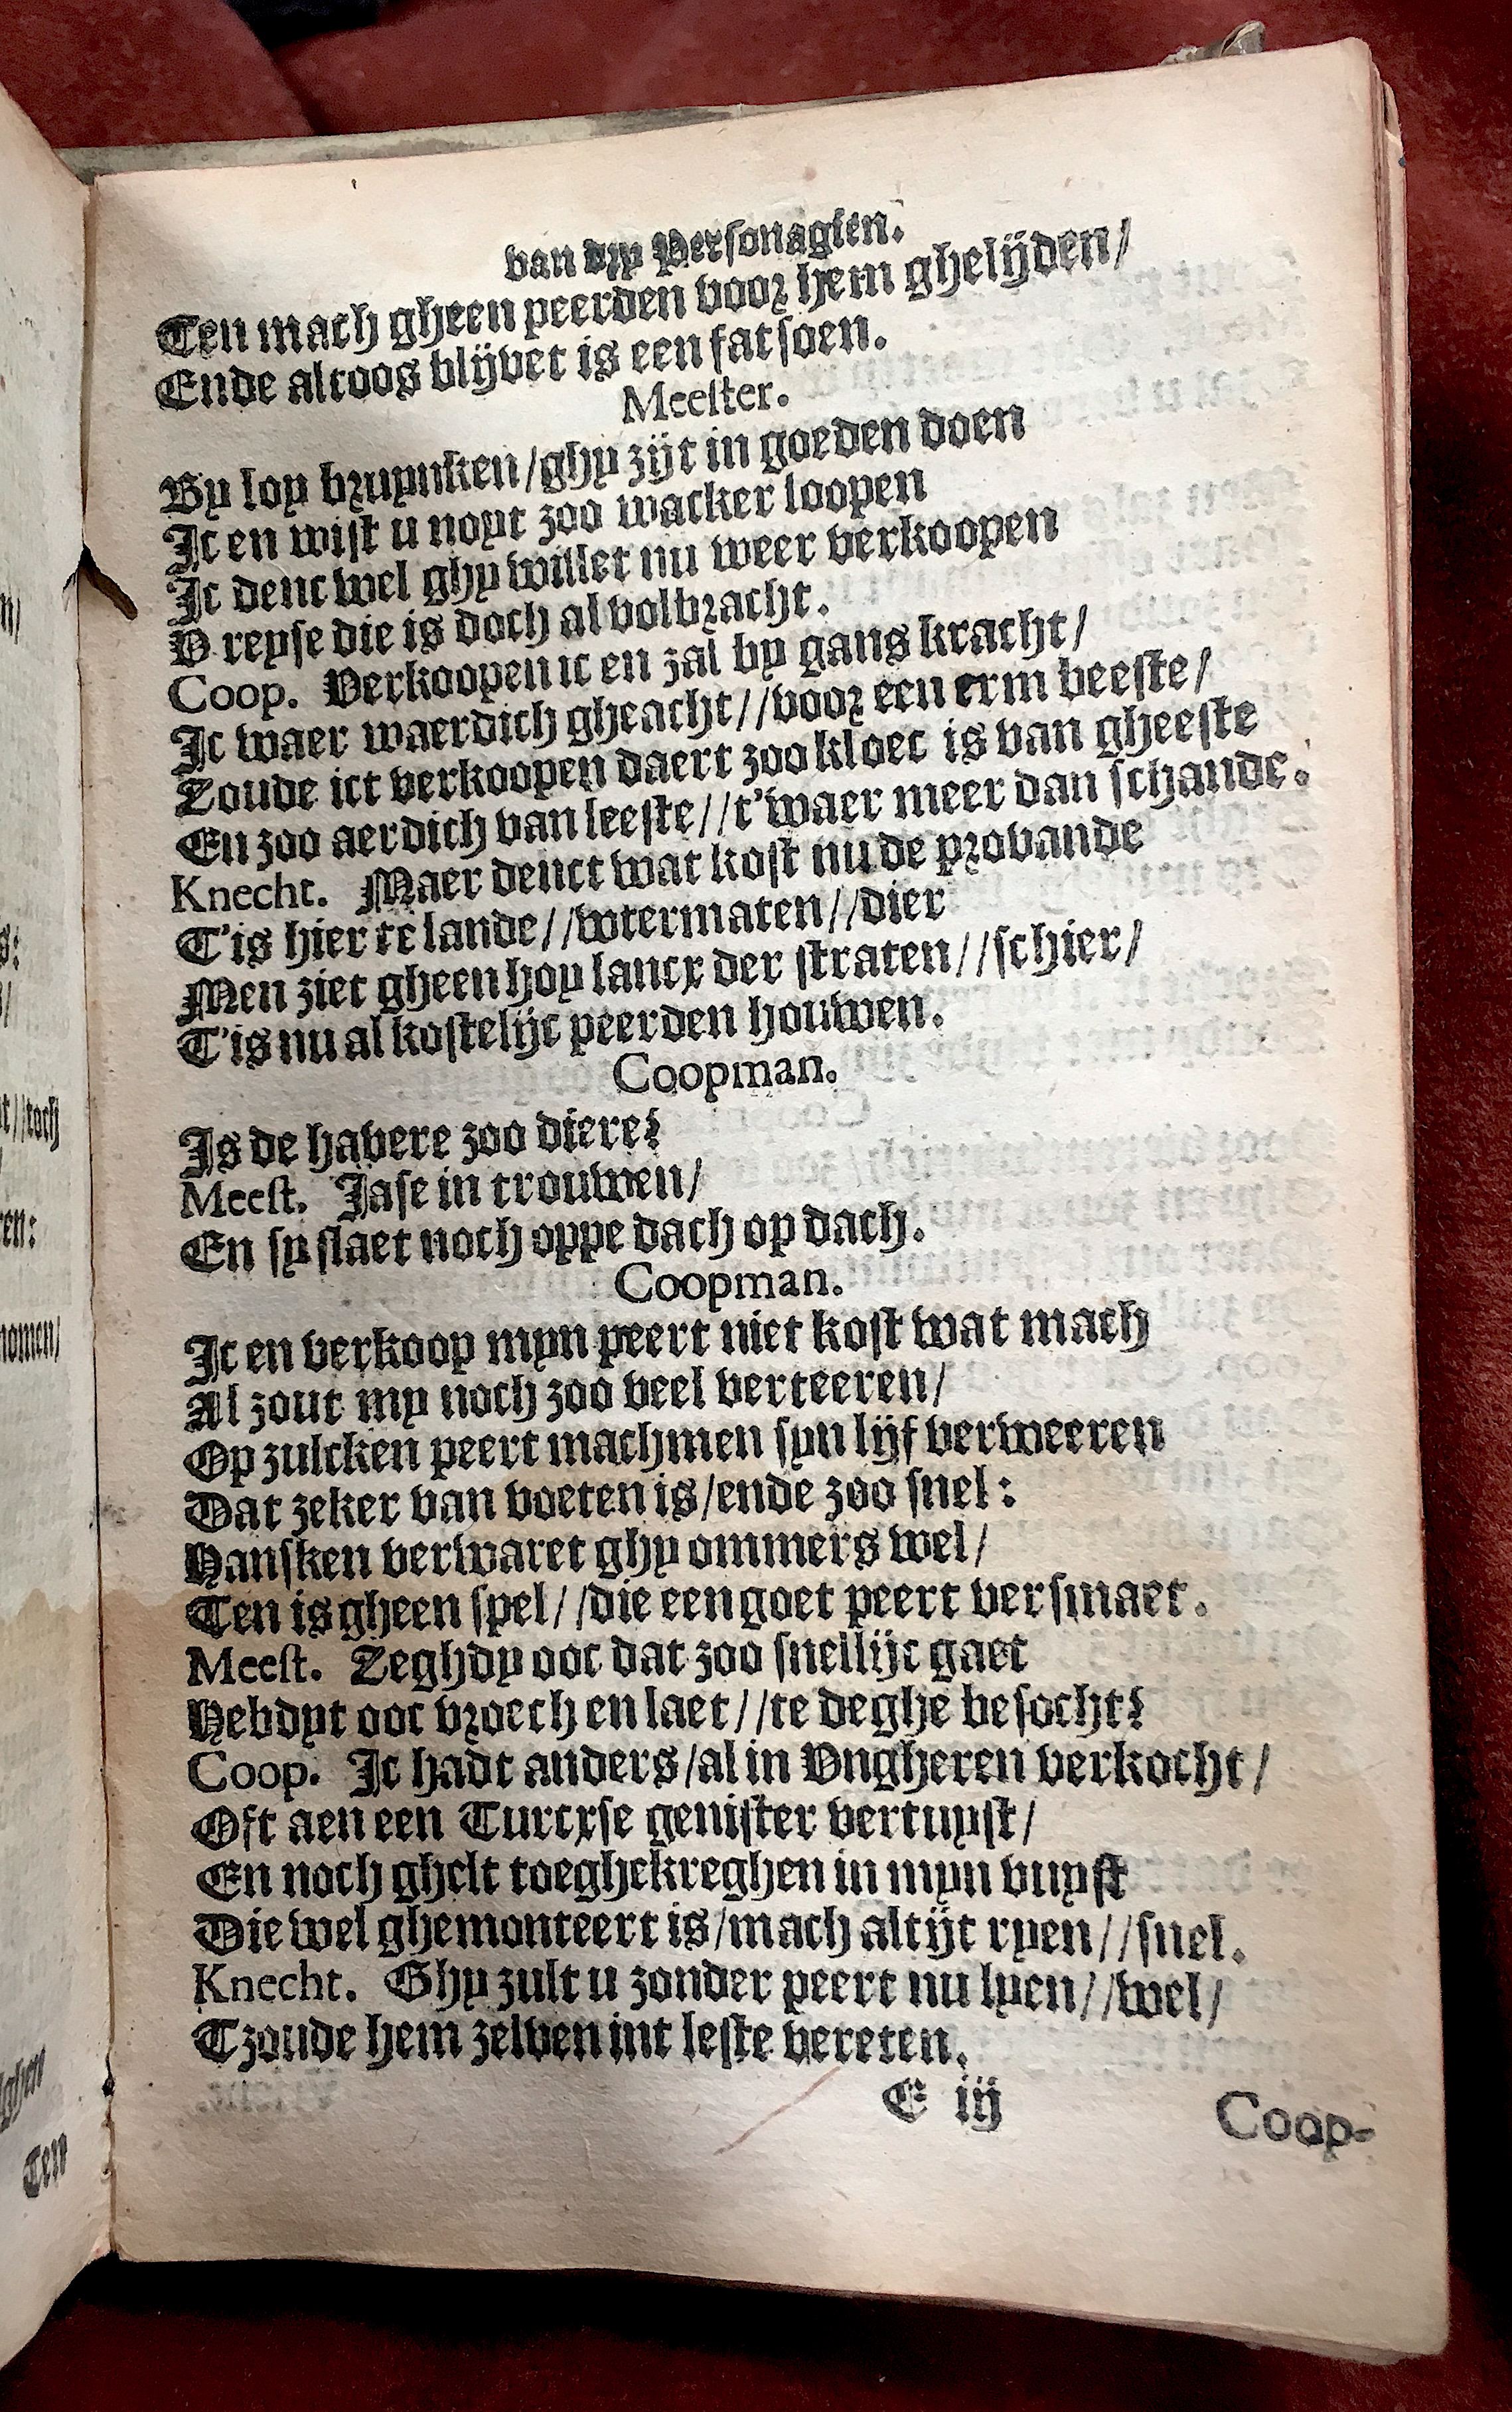 van dry Personagien.
Ten mach gheen peerden voor hem ghelijden/
Ende altoos blijvet is een fatsoen.
Meester.
By loy bruynken/ghy zijt in goeden doen
Ic en wist u noyt zoo wacker loopen
Ic denc wel ghy willet nu weer verkoopen
V reyse die is doch al volbracht.
Coop. Verkoopen ic en zal by gans kracht/
Ic waer waerdich gheacht//voor een erm beeste/
Zoude ict verkoopen daert zoo kloec is van gheeste
En zoo aerdich van leeste//t'waer meer dan schande.
Knecht. Maer denct wat kost nu de provande
T'is hier te lande//wtermaten//dier
Men ziet gheen hoy lancx der straten//schier/
T'is nu al kostelijc peerden houwen.
Coopman.
Is de havere zoo diere?
Meest. Jase in trouwen/
En sy slaet noch oppe dach op dach.
Coopman.
Ic en verkoop myn peert niet kost wat mach
Al zout my noch zoo veel verteeren/
Op zulcken peert machmen syn lijf verweeren
Dat zeker van voeten is/ende zoo snel:
Hansken verwaret ghy ommers wel/
Ten is gheen spel//die een goet peert versmaet.
Meest. Zeghdy ooc dat zoo snellijc gaet
Hebdyt ooc vroech en laet//te deghe besocht?
Coop. Ic hadt anders/al in Vngheren verkocht/
Oft aen een Turcxse genister vertuyst/
En noch ghelt toeghekreghen in myn vuyst
Die wel ghemonteert is/mach altijt ryen//snel.
Knecht. Ghy zult u zonder peert nu lyen//wel/
Tzoude hem zelven int leste vereten.
E iij
Coop-